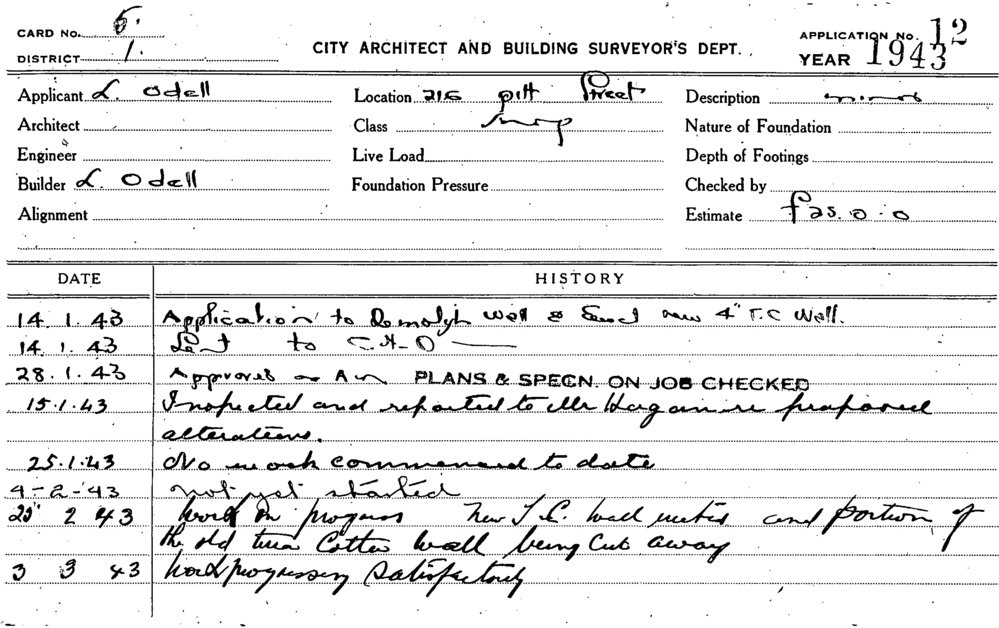 CARD No. 5.
DISTRICT 1.
CITY ARCHITECT AND BUILDING SURVEYOR'S DEPT.
APPLICATION No. 12
YEAR 1943
Applicant L. Odell
Location 216 pitt Street
Description minor
Architect
Class Shop
Nature of Foundation
Engineer
Live Load
Depth of Footings
Builder L. Odell
Foundation Pressure
Checked by
Alignment
Estimate £25.0.0
DATE HISTORY
14.1.43 Application to Demolish Wall & Erect new 4" T.C Wall.
14.1.43 Sent to C.H.O
28.1.43 Approved PLANS & SPECN. ON JOB CHECKED
15.1.43 Inspected and reported to Mr Hogan re proposed
alterations.
25.1.43 No work commenced to date
4-2-43 not yet started
25" 2 43 Work in progress New T.C. wall erected and portion of
the old terra Cotta wall being Cut away
3 3 43 Work progressing Satisfactorily